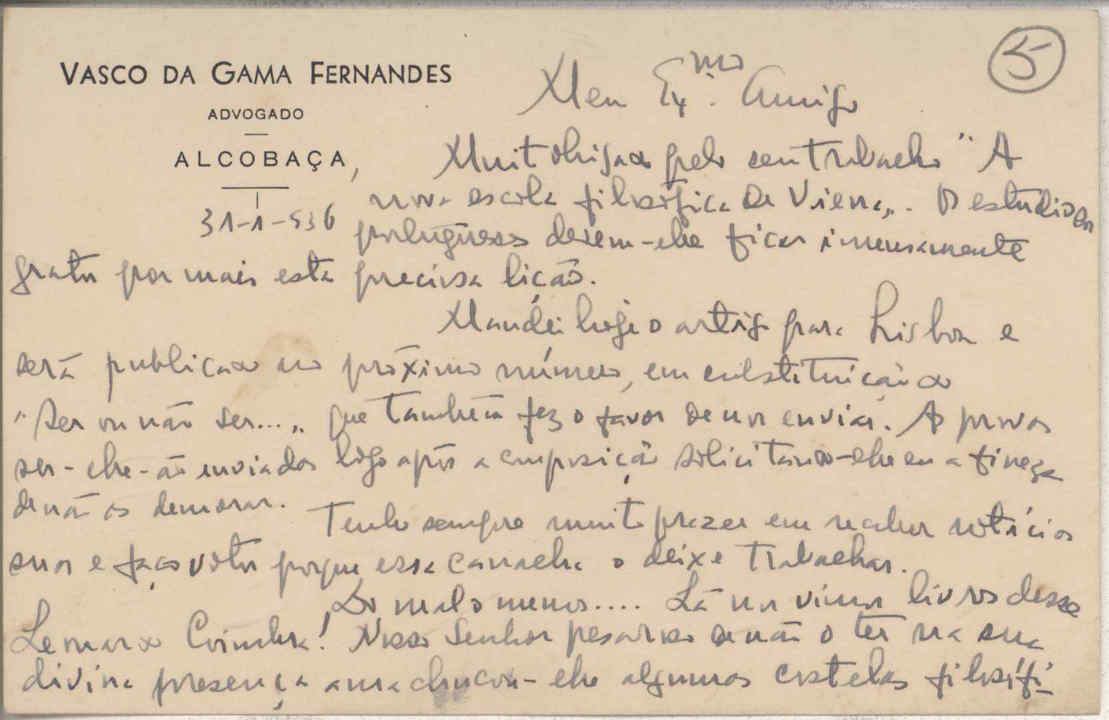 VASCO DA GAMA FERNANDES
ADVOGADO
ALCOBAÇA,
31-1-936
5
Meu Exmo. Amigo
Muito obrigado pelo seu trabalho "A
nova escola filosófica de Viena". Os estudiosos
portugueses devem-lhe ficar imensamente
gratos por mais esta preciosa lição.
Mandei hoje o artigo para Lisboa e
será publicado no próximo número, em substituição do
"Ser ou não ser...", que também fez o favor de nos enviar. As provas
ser-lhe-ão enviadas logo após a composição solicitando-lhe eu a fineza
de não as demorar.
Tenho sempre muito prazer em receber notícias
suas e faço votos porque essa canalha o deixe trabalhar.
Do mal o menos.... Lá nos vimos livros desse
Leonardo Coimbra! Nosso Senhor pesaroso de não o ter na sua
divina presença amachucou-lhe algumas costelas filosófi-